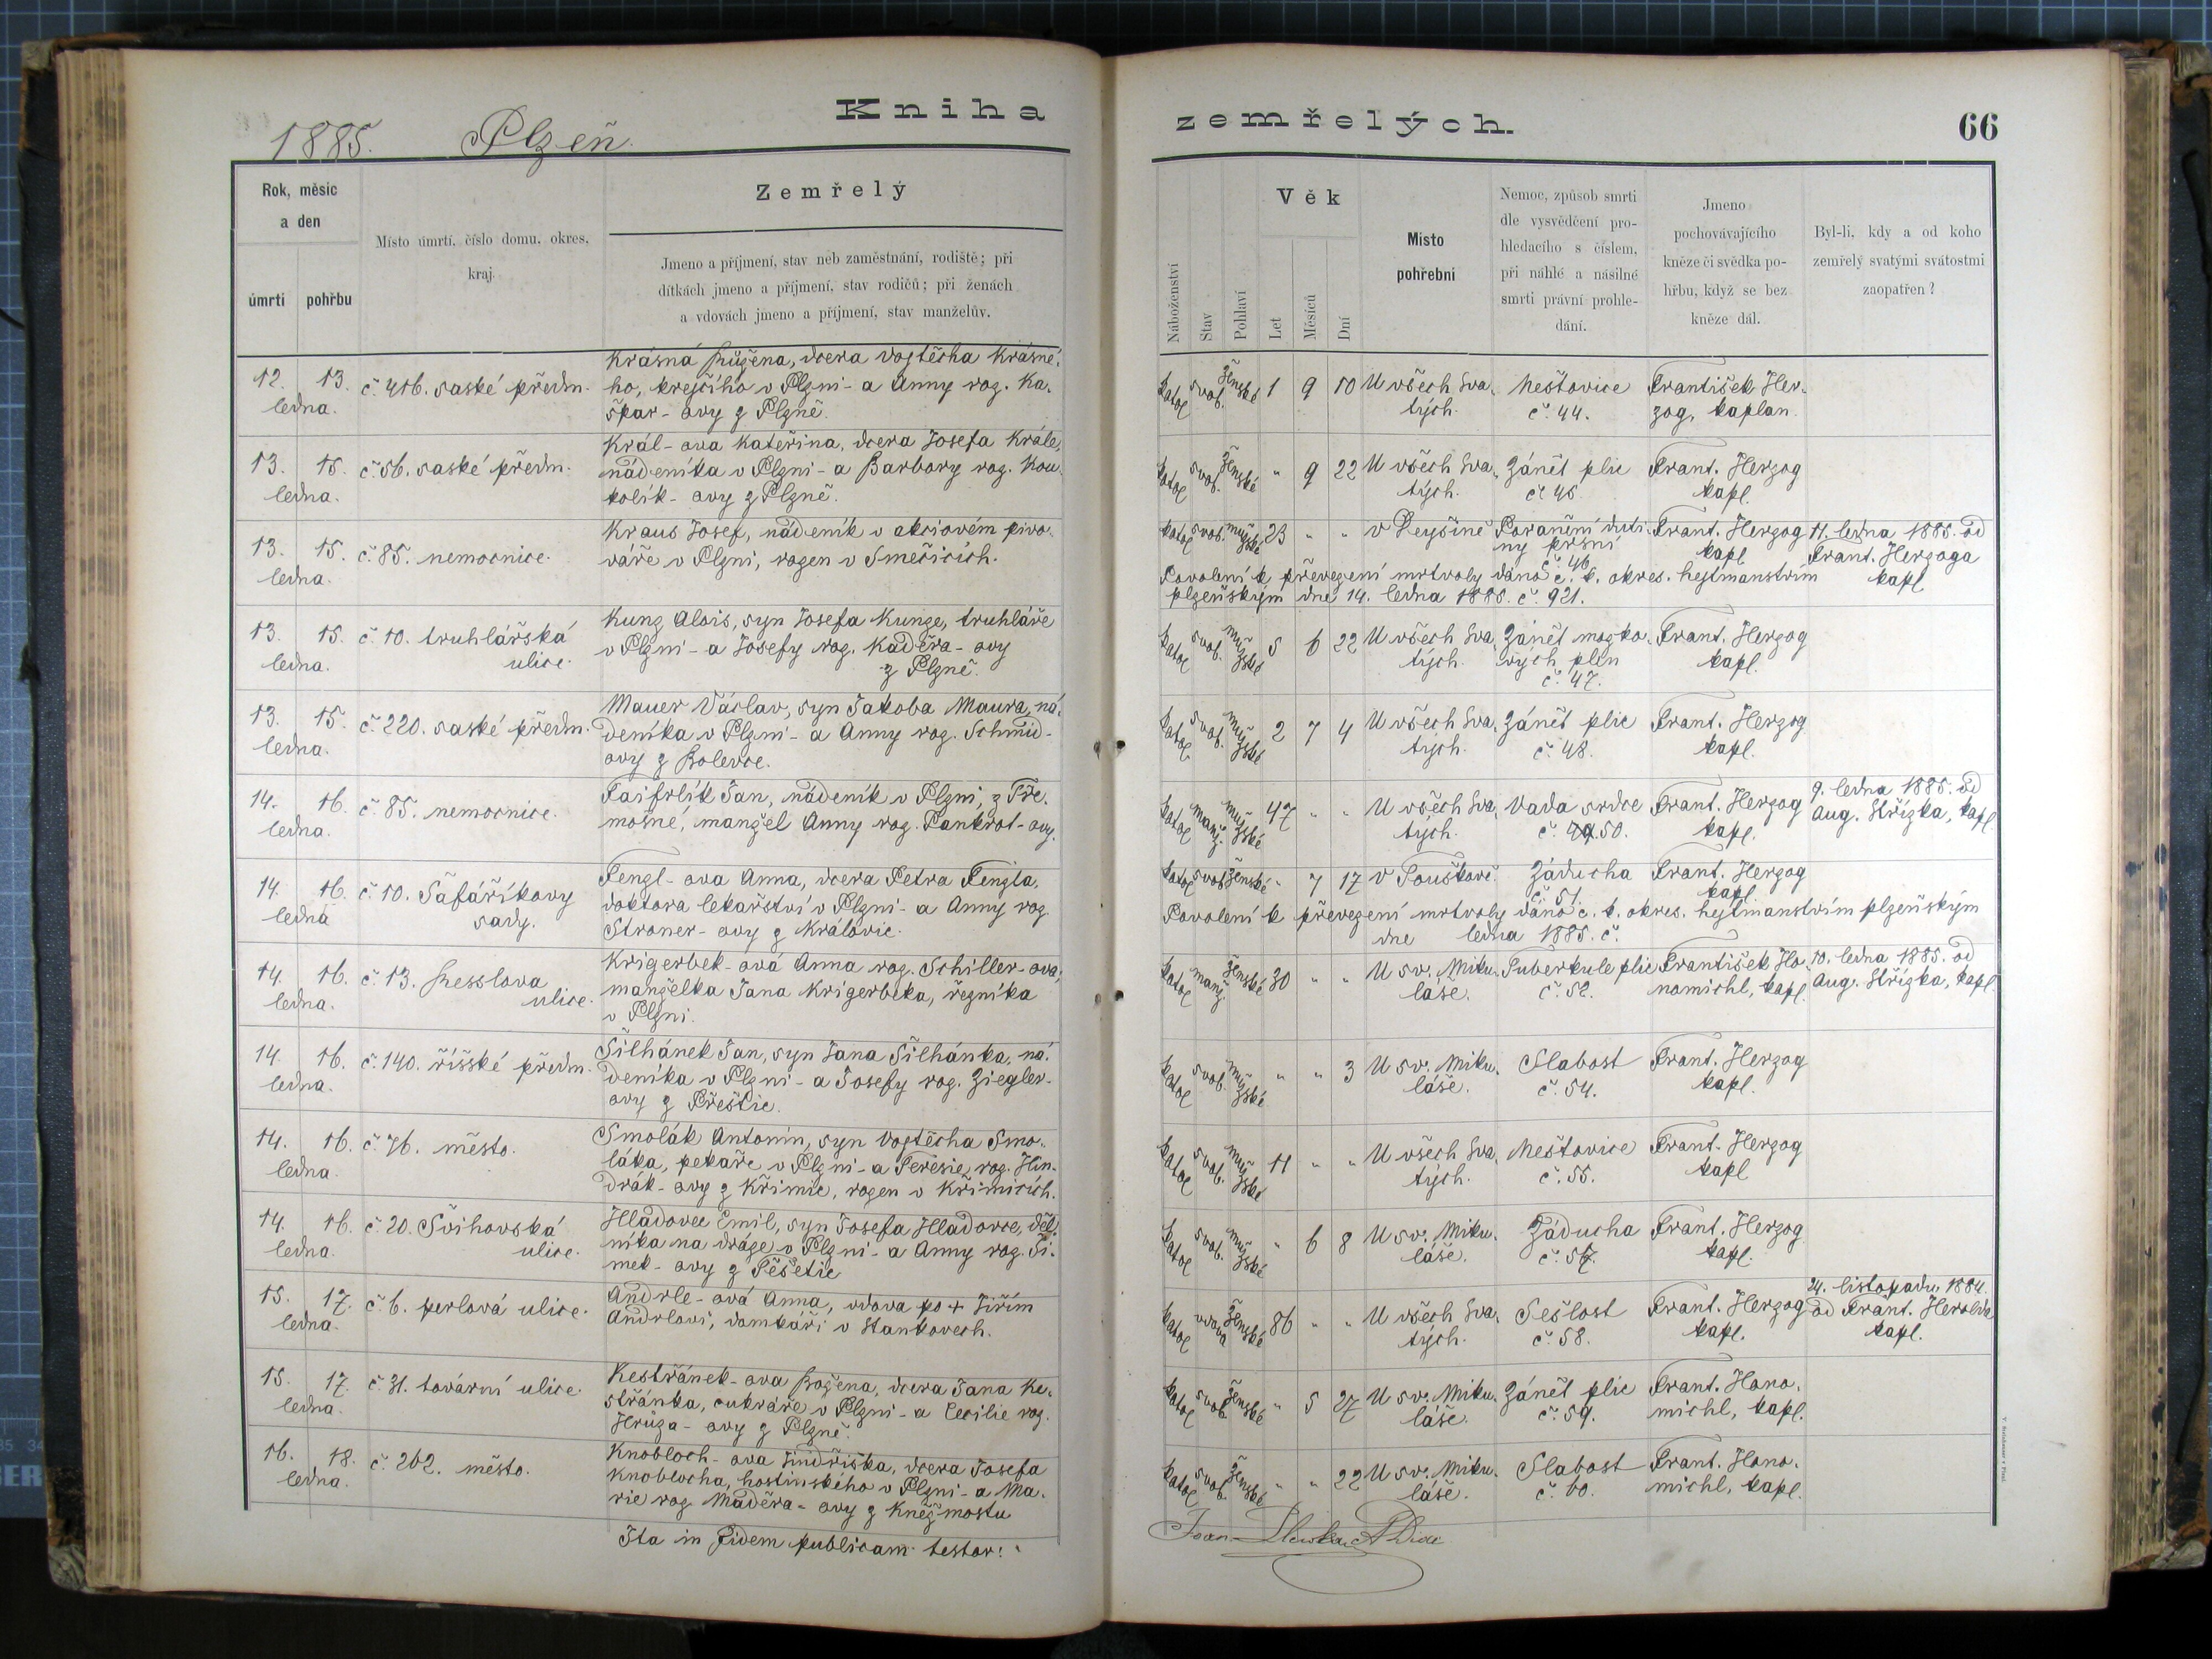 Kniha
1885. Plzeň.
Rok, měsíc
a den
úmrtí pohřbu
Místo úmrtí, číslo domu, okres,
kraj.
Zemřelý
Jmeno a příjmení, stav neb zaměstnání, rodiště; při
dítkách jmeno a příjmení, stav rodičů; při ženách
a vdovách jmeno a příjmení, stav manželův.
12. 13.
ledna.
č. 416. saské předm.
Krásná Růžena, dcera Vojtěcha Krásné-
ho, krejčího v Plzni - a Anny roz. Ka-
špar-ovy z Plzně.
13. 15.
ledna.
č. 56. saské předm.
Král-ova Kateřina, dcera Josefa Krále,
nádeníka v Plzni - a Barbory roz. Kou-
kolík-ovy z Plzně.
13. 15.
ledna.
č. 85. nemocnice.
Kraus Josef, nádeník v akciovém pivo-
váře v Plzni, rozen v Smečicích.
13. 15.
ledna.
č. 10. truhlářská
ulice.
Kunz Alois, syn Josefa Kunze, truhláře
v Plzni - a Josefy roz. Kaděra-ovy
z Plzně.
13. 15.
ledna.
č. 220. saské předm.
Mauer Václav, syn Jakoba Maura, ná-
deníka v Plzni - a Anny roz. Schmid-
ovy z Bolevce.
14. 16.
ledna.
č. 85. nemocnice.
Faifrlík Jan, nádeník v Plzni, z Tře-
mošne, manžel Anny roz. Pankrot-ovy.
14. 16.
ledna
č. 10. Šafaříkovy
sady.
Fengl-ova Anna, dcera Petra Fengla,
doktora lekařství v Plzni - a Anny roz.
Stroner-ovy z Královic.
14. 16.
ledna.
č. 13. Resslova
ulice.
Krigerbek-ová Anna roz. Schiller-ova,
manželka Jana Krigerbeka, řezníka
v Plzni.
14. 16.
ledna.
č. 140. říšské předm.
Šilhánek Jan, syn Jana Šilhánka, ná-
deníka v Plzni - a Josefy roz. Ziegler-
ovy z Přeštic.
14. 16.
ledna.
č. 76. město.
Smolák Antonín, syn Vojtěcha Smo-
láka, pekaře v Plzni - a Teresie roz. Hin-
drák-ovy z Křimic, rozen v Křimicích.
14. 16.
ledna.
č. 20. Švihovská
ulice.
Hladovec Emil, syn Josefa Hladovce, děl-
níka na dráze v Plzni - a Anny roz. Ši-
mek-ovy z Těšetic
15. 17.
ledna.
č. 6. perlová ulice.
Andrle-ová Anna, vdova po + Jiřím
Andrlovi, domkáři v Stankovech.
15. 17.
ledna.
č. 31. tovární ulice.
Kestřánek-ova Božena, dcera Jana Ke-
střánka, cukráře v Plzni - a Cecilie roz.
Hrůza-ovy z Plzně.
16. 18.
ledna.
č. 262. město.
Knobloch-ova Jindřiška, dcera Josefa
Knoblocha, hostinského v Plzni - a Ma-
rie roz. Maděra-ovy z Kněžmostu
Ita in fidem publicam testor:
zemřelých.
66
Náboženství
Stav
Pohlaví
Věk
Let
Měsíců
Dní
Místo
pohřební
Nemoc, způsob smrti
dle vysvědčení pro-
hledacího s číslem,
při náhlé a násilné
smrti právní prohle-
dání.
Jmeno
pochovávajícího
kněze či svědka po-
hřbu, když se bez
kněze dál.
Byl-li, kdy a od koho
zemřelý svatými svátostmi
zaopatřen?
katol svob. ženské 1 9 10 U všech Sva- Neštovice František Her-
tých. č. 44. zog, kaplan.
katol svob. ženské " 9 22 U všech Sva- Zánět plic Frant. Herzog
tých. č. 45 kapl.
katol svob. mužské 23 " " v Dejšině Poranění duti- Frant. Herzog 11. ledna 1885. od
ny prsní kapl Frant. Herzoga
č. 46 kapl
Povolení k převezení mrtvoly dáno c. k. okres. hejtmanstvím
plzeňským dne 14. ledna 1885. č. 921.
katol svob. mužské 5 6 22 U všech Sva- Zánět mozko- Frant. Herzog
tých. vých plen kapl.
č. 47.
katol svob. mužské 2 7 4 U všech Sva- Zánět plic Frant. Herzog
tých. č. 48. kapl.
katol manž. mužské 47 " " U všech Sva- Vada srdce Frant. Herzog 9. ledna 1885. od
tých. č. 49. 50. kapl. Aug. Střízka, kapl.
katol svob. ženské " 7 17 v Touškově. Záducha Frant. Herzog
č. 51. kapl.
Povolení k převezení mrtvoly dáno c. k. okres. hejtmanstvím plzeňským
dne ledna 1885. č.
katol manž. ženské 30 " " U sv. Miku- Tuberkule plic František Ho- 10. ledna 1885. od
láše. č. 52. nomichl, kapl. Aug. Střízka, kapl.
katol svob. mužské " " 3 U sv. Miku- Slabost Frant. Herzog
láše. č. 54. kapl.
katol svob. mužské 11 " " U všech Sva- Neštovice Frant. Herzog
tých. č. 55. kapl
katol svob. mužské " 6 8 U sv. Miku- Záducha Frant. Herzog
láše. č. 57. kapl.
katol vdova ženské 86 " " U všech Sva- Sešlost Frant. Herzog 24. listopadu 1884.
tých. č. 58. kapl. od Frant. Herolda
kapl.
katol svob. ženské " 5 27 U sv. Miku- Zánět plic Frant. Hono-
láše. č. 59. michl, kapl.
katol svob. ženské " " 22 U sv. Miku- Slabost Frant. Hono-
láše. č. 60. michl, kapl.